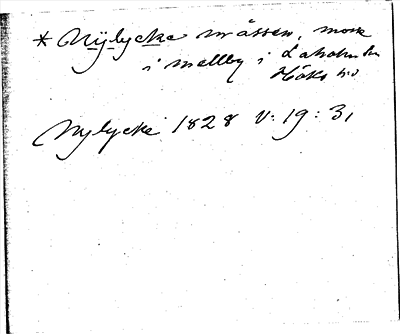 * Nylycke måssen, mosse
i Mellby i Laholm
Höks hd
Nylycke 1828 V: 19: 31